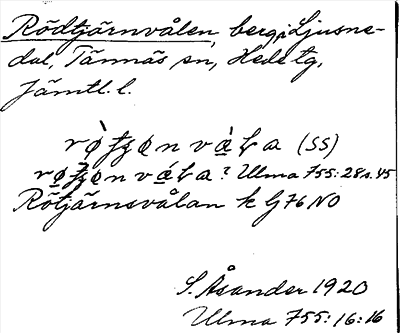 Rödtjärnvålen, berg i Ljusne-
dal, Tännäs sn, Hede tg,
Jämtl. l.
(SS)
? Ulma 755: 28 s. 45
Rötjärnsvålan k G 76 NO
S. Åsander 1920
Ulma 755: 16: 16